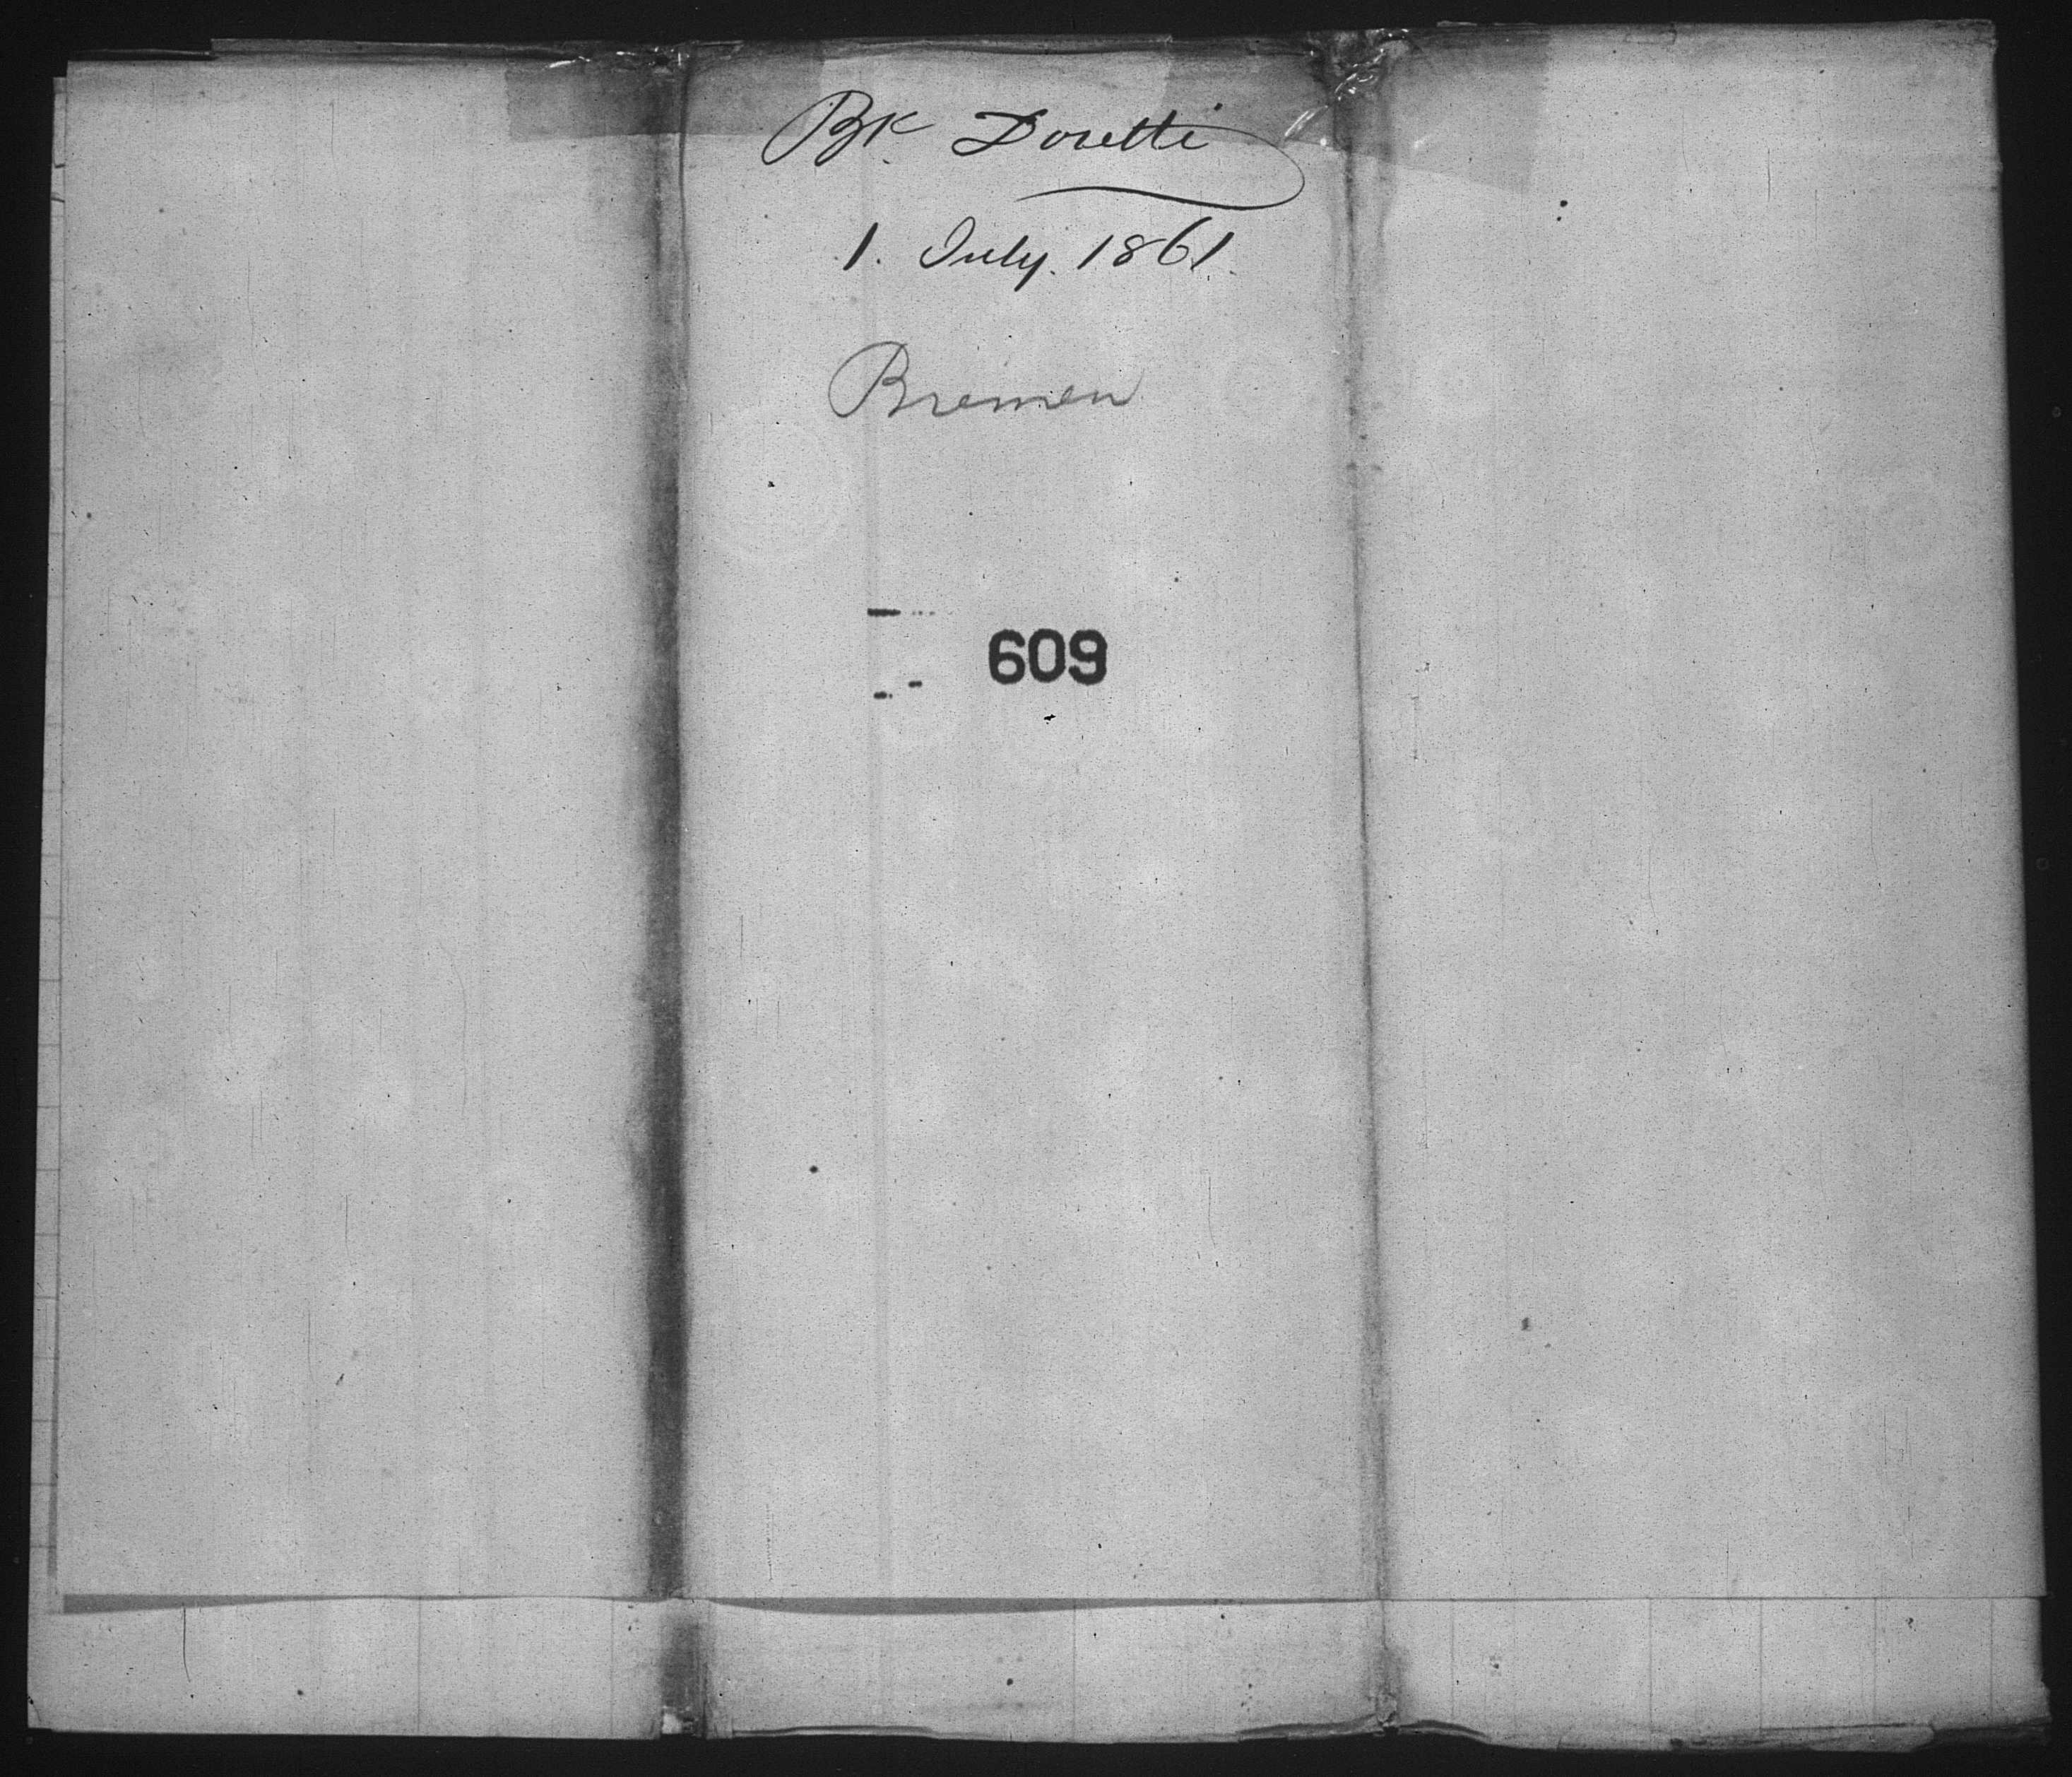 Bk Doretti
1. July. 1861.
Bremen
609